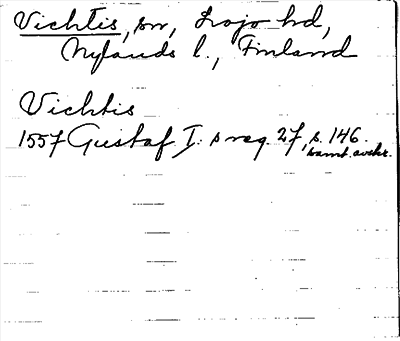 Vichtis, sn, Lojo hd,
Nylands l., Finland
Vichtis
1557 Gustaf I:s reg. 27, s. 146.
samt. avskr.